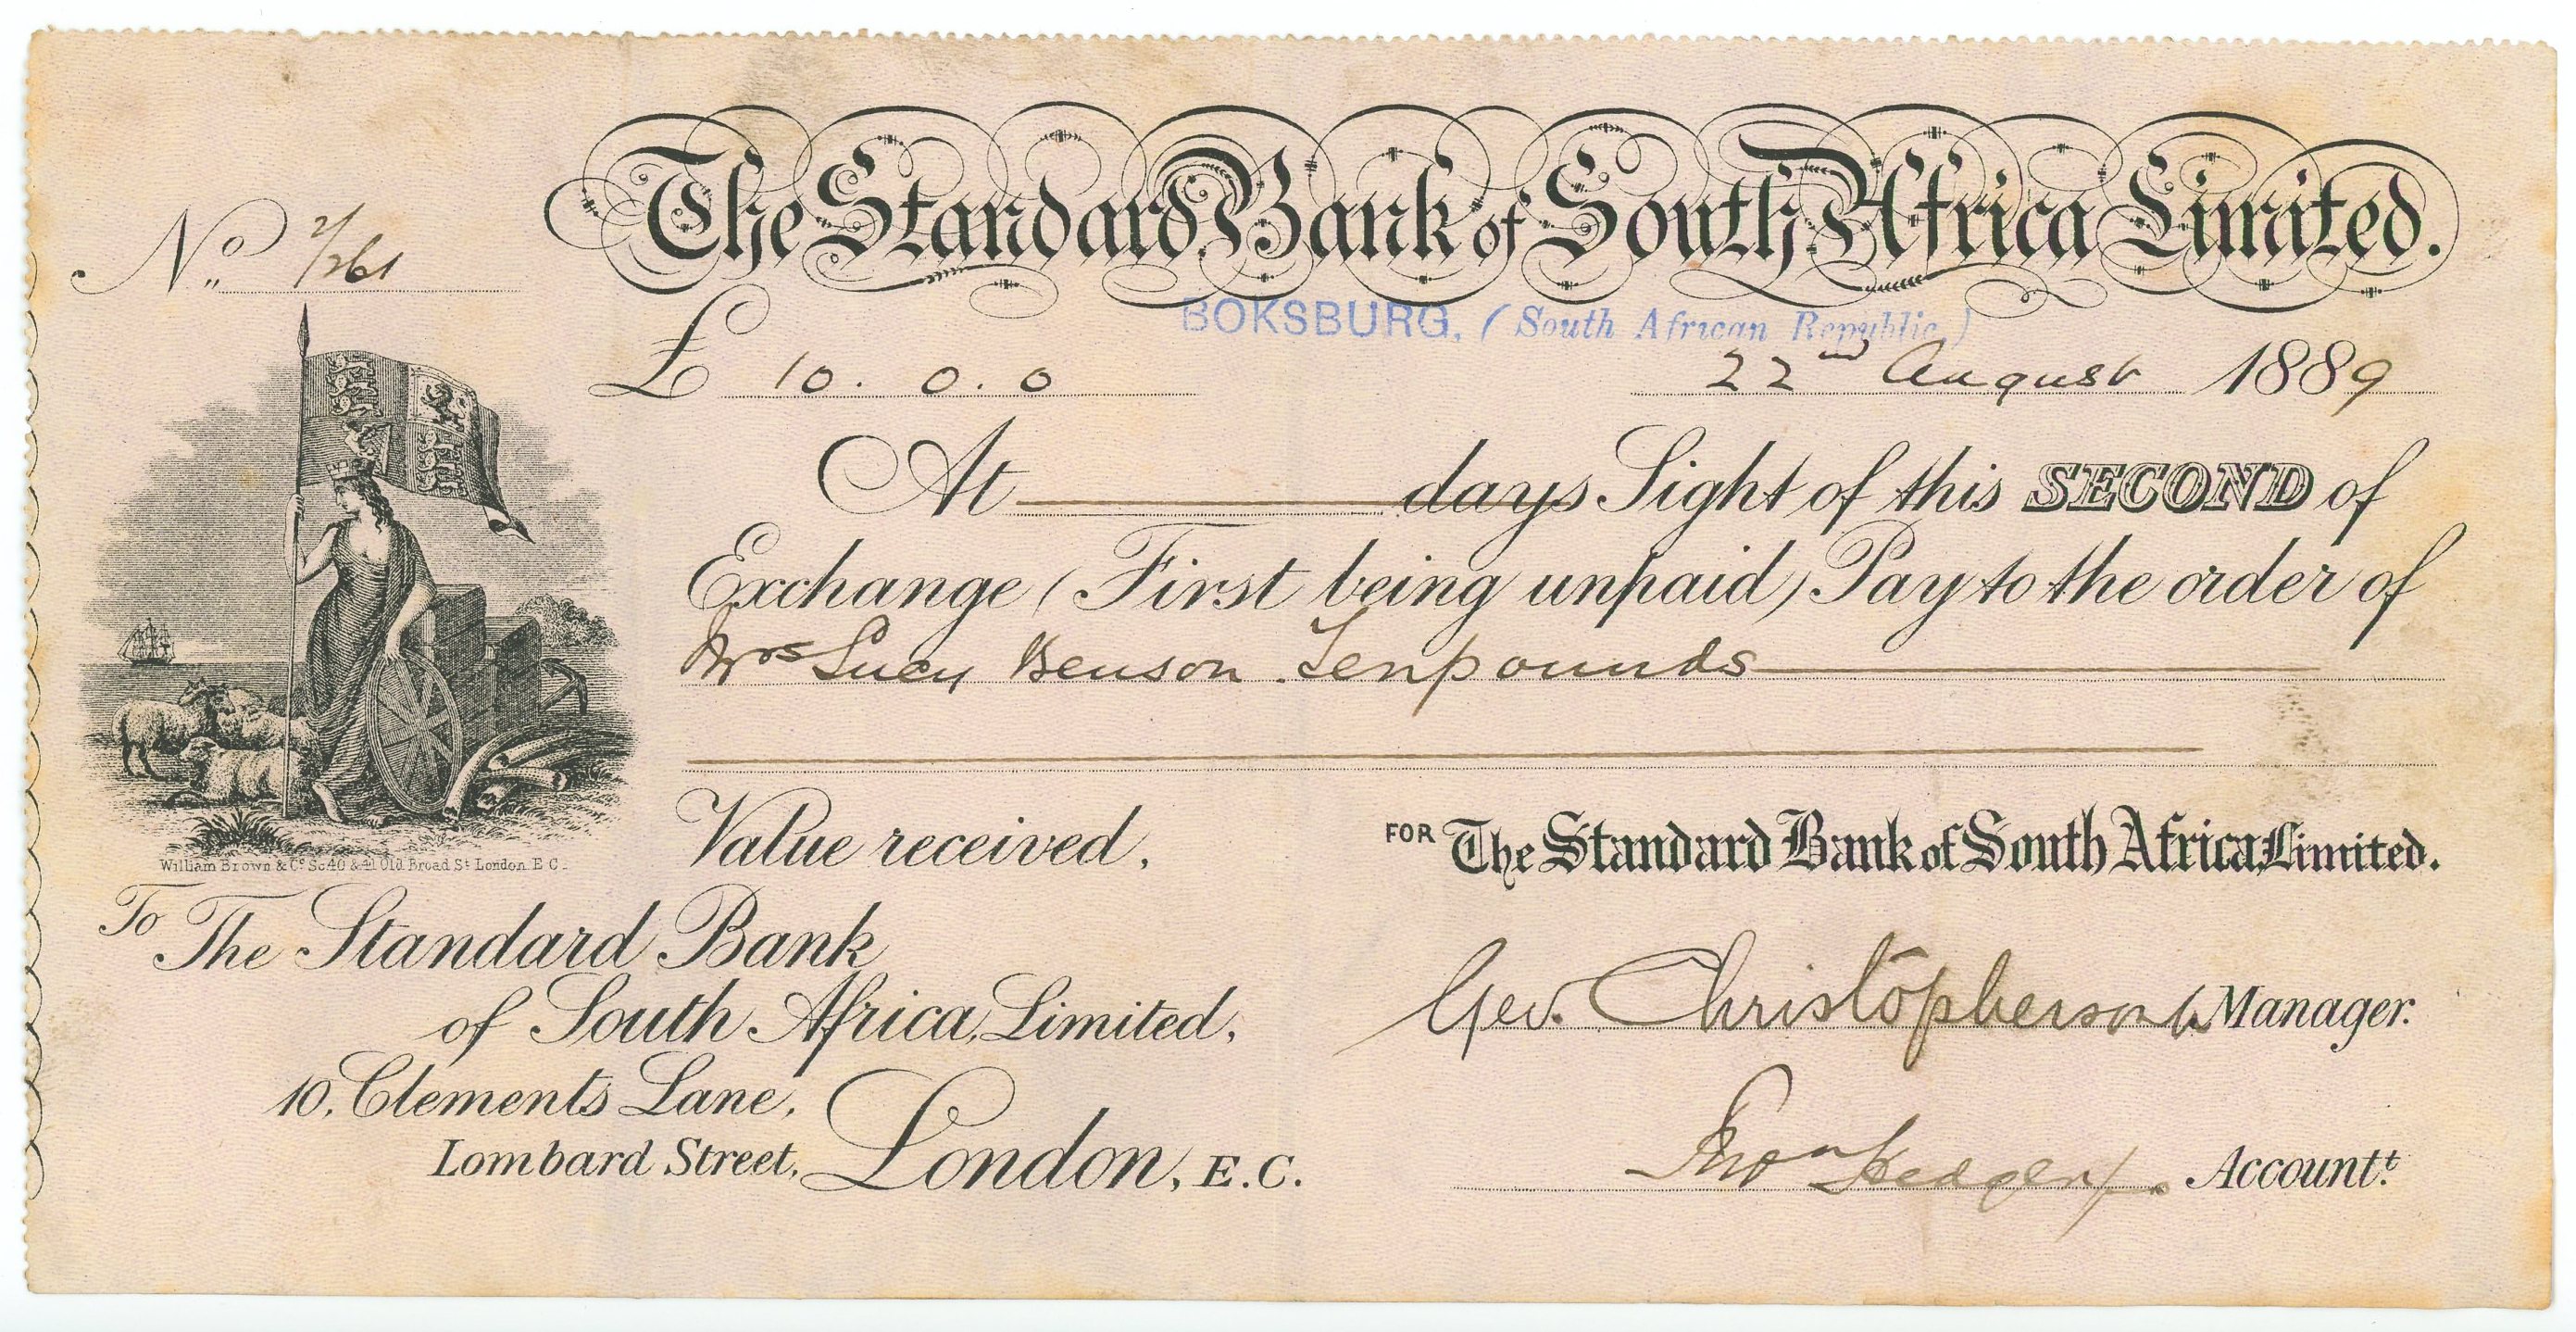 The Standard Bank of South Africa Limited.
No. 2/261
BOKSBURG, (South African Republic,)
£ 10. 0. 0
22nd August 1889
At days Sight of this SECOND of
Exchange (First being unpaid) Pay to the order of
Mrs Lucy Benson Ten pounds
William Brown & Co. Sc. 40 & 41 Old Broad St. London. E C.
Value received,
FOR The Standard Bank of South Africa, Limited.
To The Standard Bank
of South Africa, Limited,
10, Clements Lane,
Lombard Street, London, E.C.
Geo. Christopherson Manager.
Accountt.